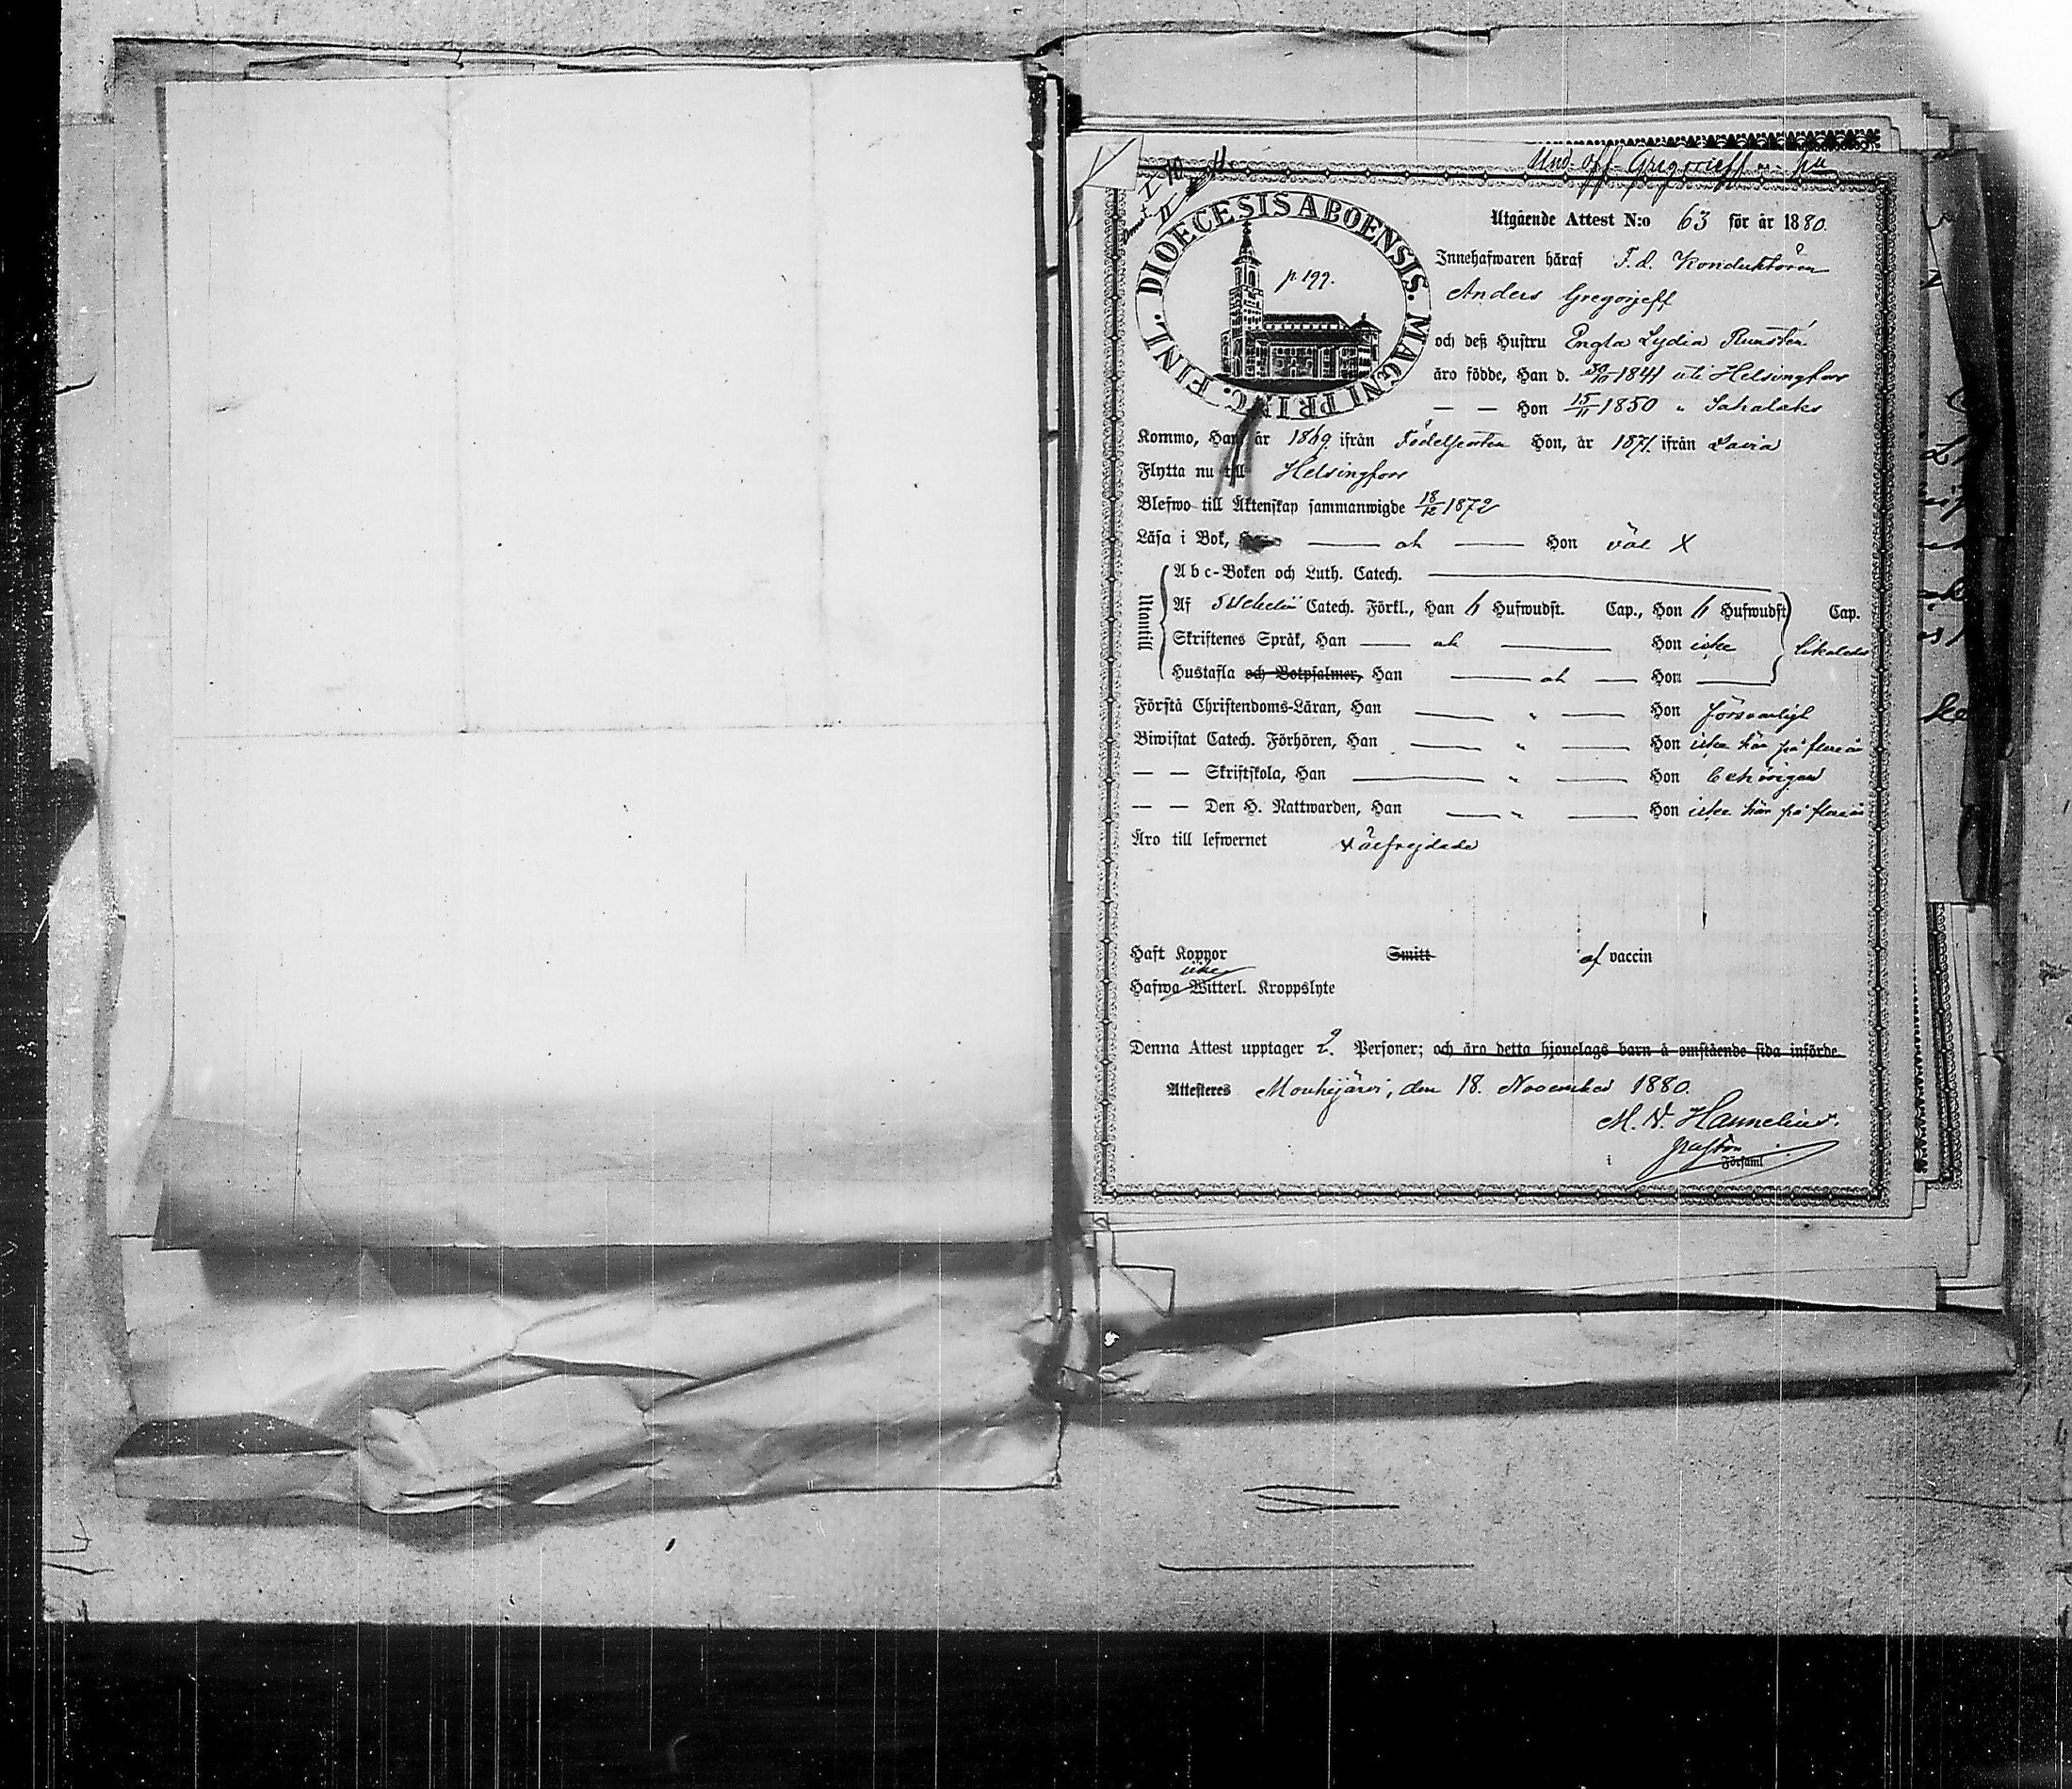 Und. off. Gregorieff
DIOECESIS ABOENSIS. MAGNI PRINC. FINL.
p. 199.
Utgående Attest N:o 63 för år 1880.
Innehafwaren häraf F.d. Konduktören
Anders Gregorjeff
och deß Hustru Engla Lydia Runstén
äro födde, Han d. 1841 uti Helsingfors
— — Hon 15/11 1850 " Sahalaks
Kommo, Han år 1869 ifrån Födelseorten Hon, år 1871 ifrån Lavia
Flytta nu till Helsingfors
Blefwo till Äktenskap sammanwigde 18/12 1872
Läsa i Bok, — ok — Hon väl X
Utantill
Abc-Boken och Luth. Catech. —
Af Svebelii Catech. Förkl., Han 6 Hufwudst. Cap., Hon 6 Hufwudst. Cap.
Skriftenes Språk, Han — ok — Hon icke likaledes
Hustafla och Botpsalmer, Han — ok — Hon —
Förstå Christendoms-Läran, Han — " — Hon försvarligt
Biwistat Catech. Förhören, Han — " — Hon icke här på flere år
— — Skriftskola, Han — " — Hon behörigen
— — Den H. Nattwarden, Han — " — Hon icke här på flere år
Äro till lefwernet välfrejdade
Haft Koppor Smitt af vaccin
icke
Hafwa Witterl. Kroppslyte
Denna Attest upptager 2. Personer; och äro detta hjonelags barn å omstående sida införde.
Attesteres Mouhijärvi, den 18. November 1880.
M. N. Hannelius.
pastor
i Församl